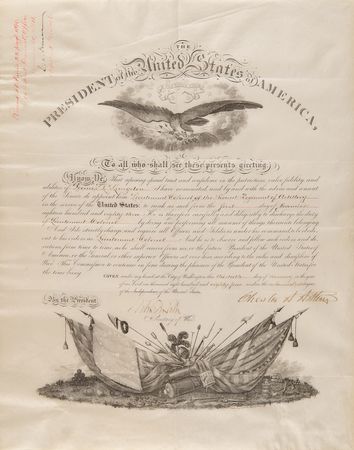 THE
PRESIDENT of the United States of AMERICA,
To all who shall see these presents greeting:
Know Ye, That reposing special trust and confidence in the patriotism, valor, fidelity and
abilities of I have nominated, and by and with the advice and consent
of the Senate, do appoint him Lieutenant Colonel of the Regiment of Artillery
in the service of the United States: to rank as such from the first day of
eighteen hundred and eighty three. He is therefore carefully and diligently to discharge the duty
of Lieutenant Colonel by doing and performing all manner of things thereunto belonging.
And I do strictly charge and require all Officers and Soldiers under his command to be obedi-
ent to his orders as Lieutenant Colonel. And he is to observe and follow such orders and di-
rections from time to time, as he shall receive from me, or the future President of the United States of
America, or the General or other superior Officers set over him, according to the rules and discipline of
War. This Commission to continue in force during the pleasure of the President of the United States for
the time being.
GIVEN under my hand at the City of Washington this day of in the year
of our Lord one thousand eight hundred and eighty four and in the
of the Independence of the United States.
By the President,
Chester A. Arthur
Secretary of War